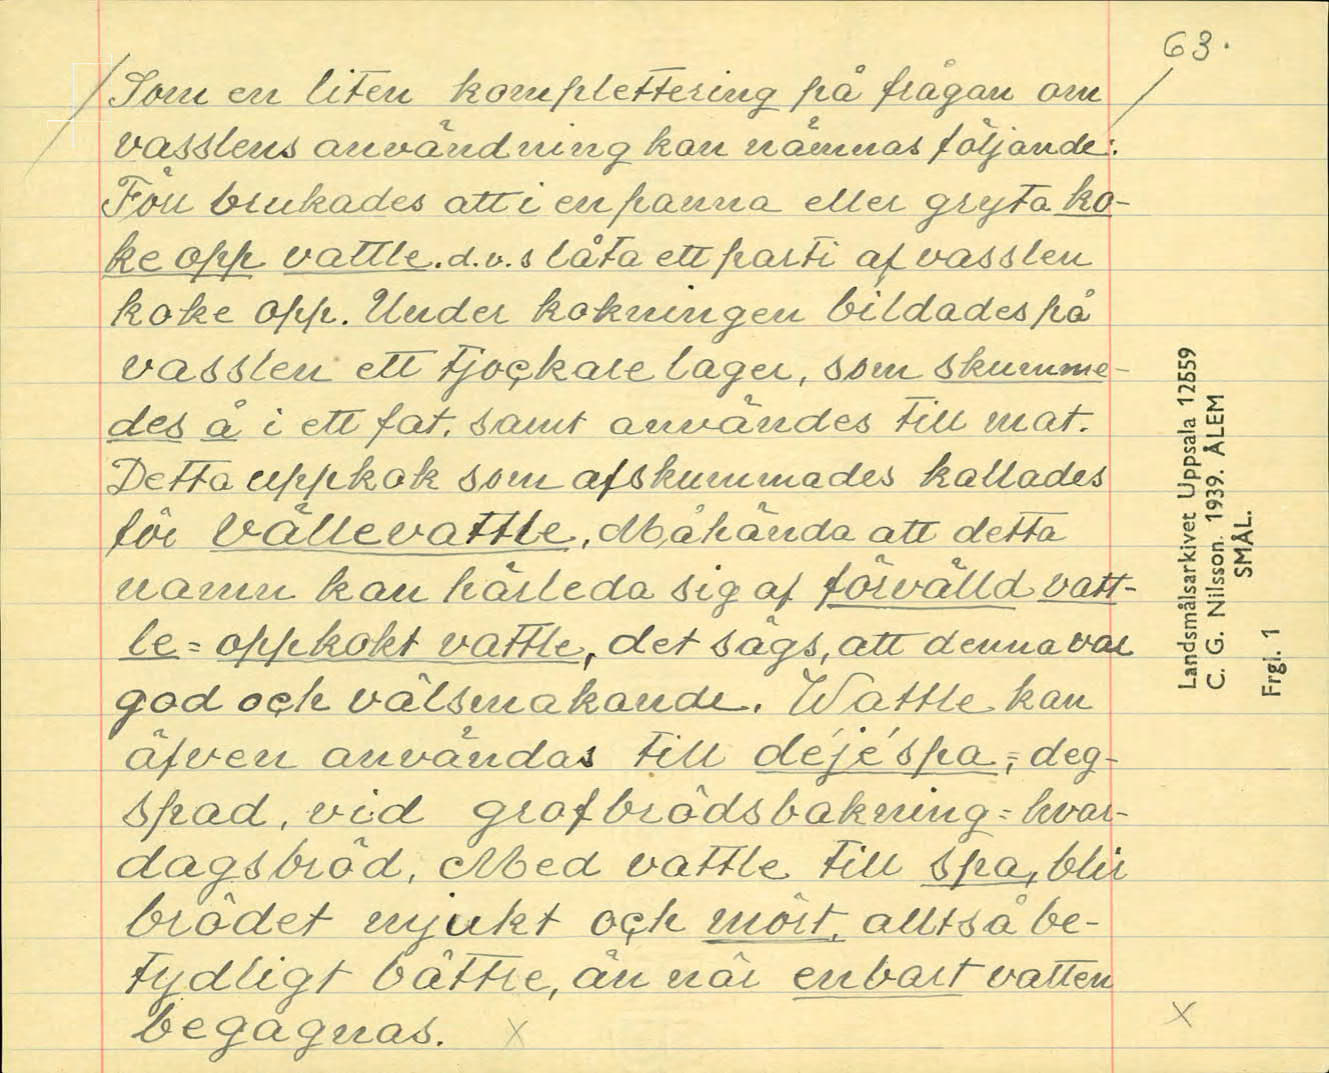 63.
Som en liten komplettering på frågan om
vasslens användning kan nämnas följande:
Förr brukades att i en panna eller gryta ko-
ke opp vattle. d.v.s låta ett parti af vasslen
koke opp. Under kokningen bildades på
vasslen ett tjockare lager, som skumme-
des å i ett fat, samt användes till mat.
Detta uppkok som afskummades kallades
för Vällevattle, Måhända att detta
namn kan härleda sig af förvälld vatt-
le = oppkokt vattle, det sägs, att denna var
god och välsmakande. Wattle kan
äfven användas till déjéspa = deg-
spad, vid grofbrödsbakning = hvar-
dagsbröd, Med vattle till spa, blir
brödet mjukt och mört, alltså be-
tydligt bättre, än när enbart vatten
begagnas. x
x
Landsmålsarkivet Uppsala 12559
C. G. Nilsson. 1939. ÅLEM
SMÅL.
Frgl. 1